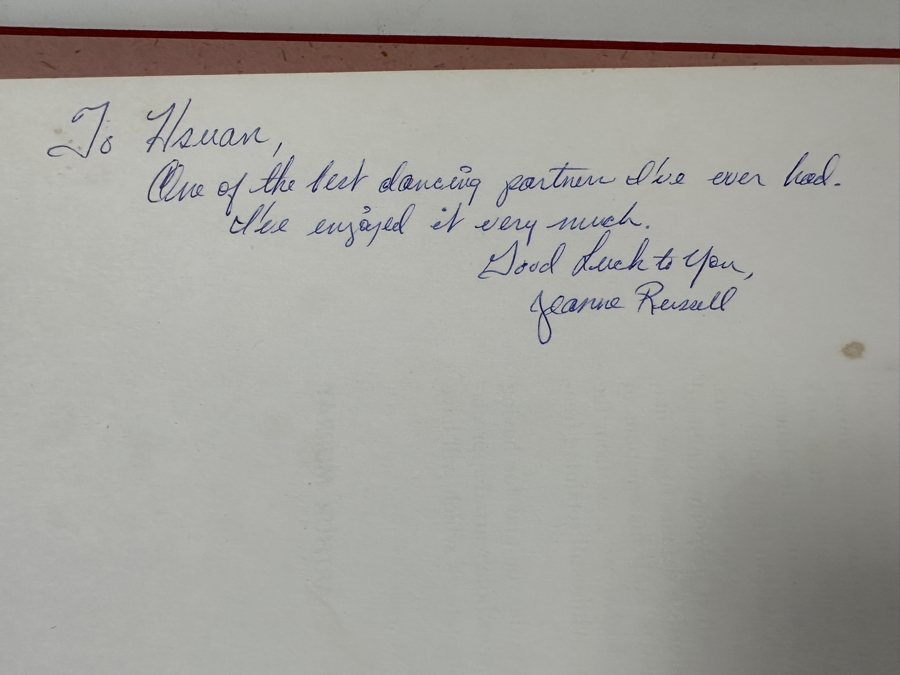 To Hsuan,
One of the best dancing partner I've ever had.
I've enjoyed it very much.
Good Luck to You,
Jeanne Russell